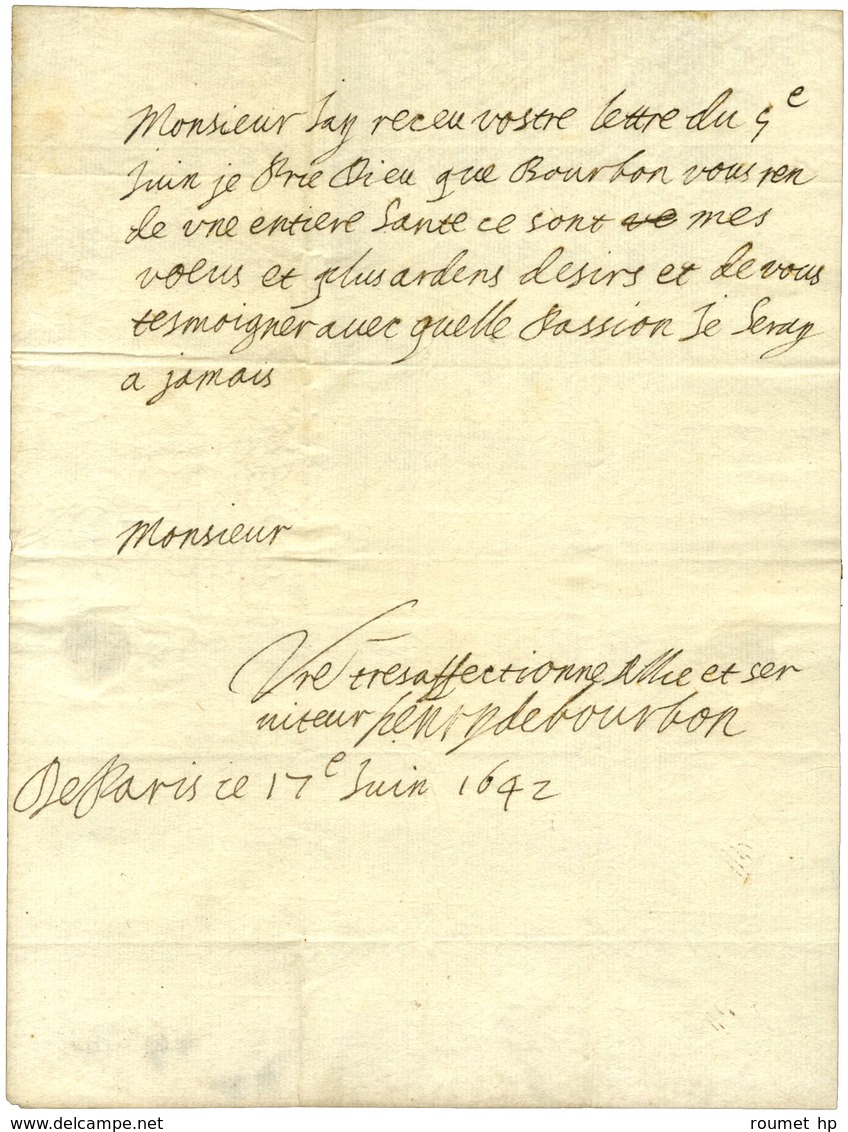 Monsieur Jay receu vostre lettre du 5e
Juin je Prie Dieu que Bourbon vous ren
de vne entiere Sante ce sont ve mes
voeus et plus ardens desirs et de vous
tesmoigner avec quelle Passion Je Seray
a jamais
Monsieur
Vre tresaffectionne Allie et ser
viteur henry de bourbon
De Paris ce 17e Juin 1642
www.delcampe.net
roumet hp